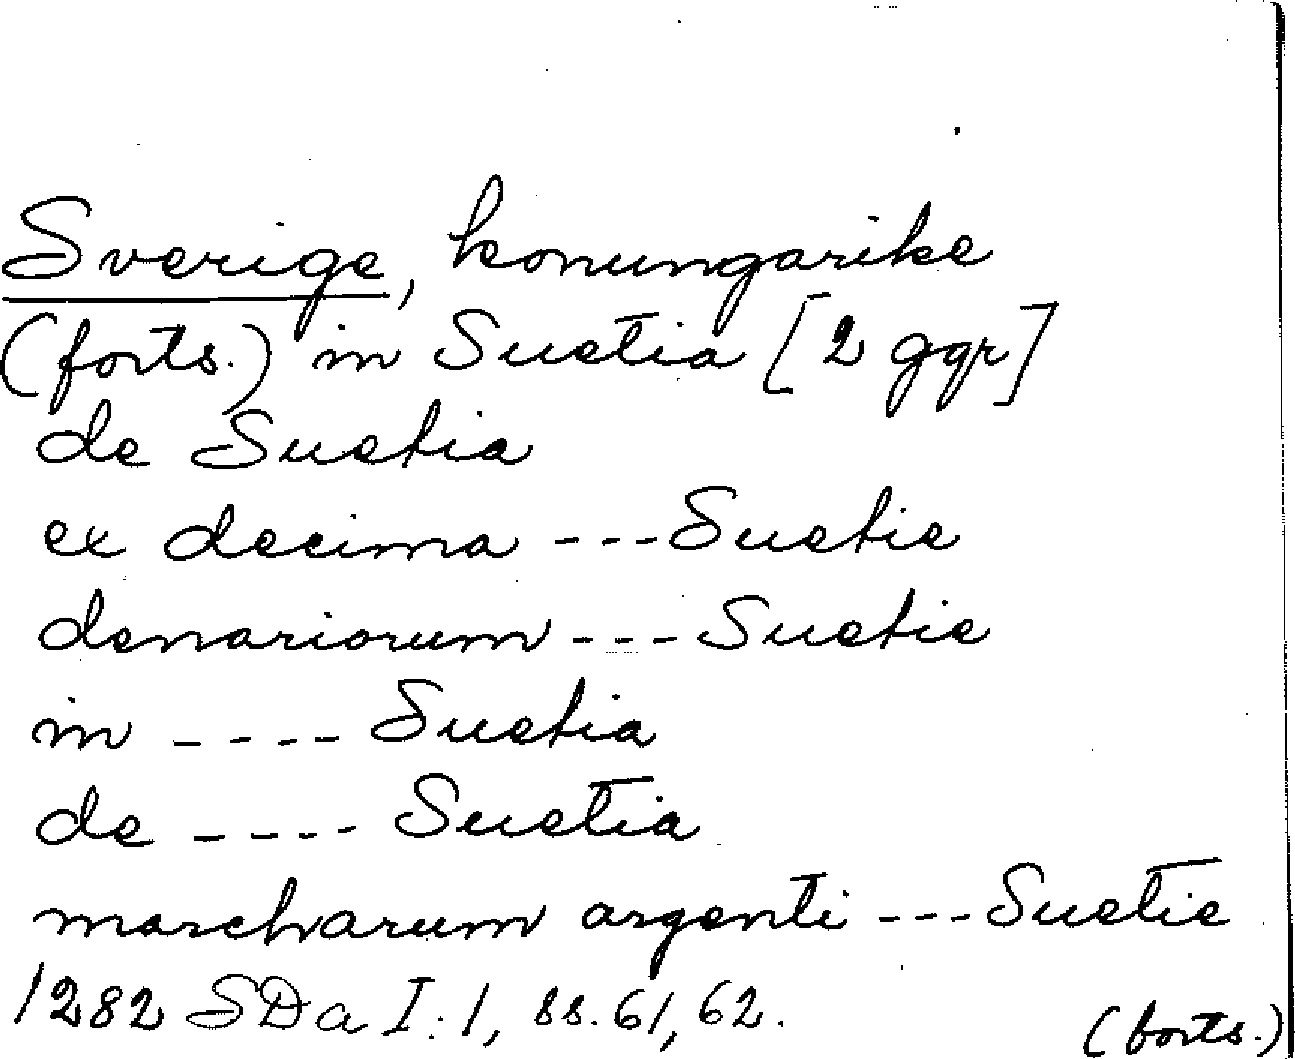 Sverige, konungarike
(forts.) in Suetia [2 ggr]
de Suetia
ex decima --- Suetie
denariorum --- Suetie
in ---- Suetia
de ---- Suetia
marcharum argenti --- Suetie
1282 SDa I:1, ss. 61, 62.
(forts.)